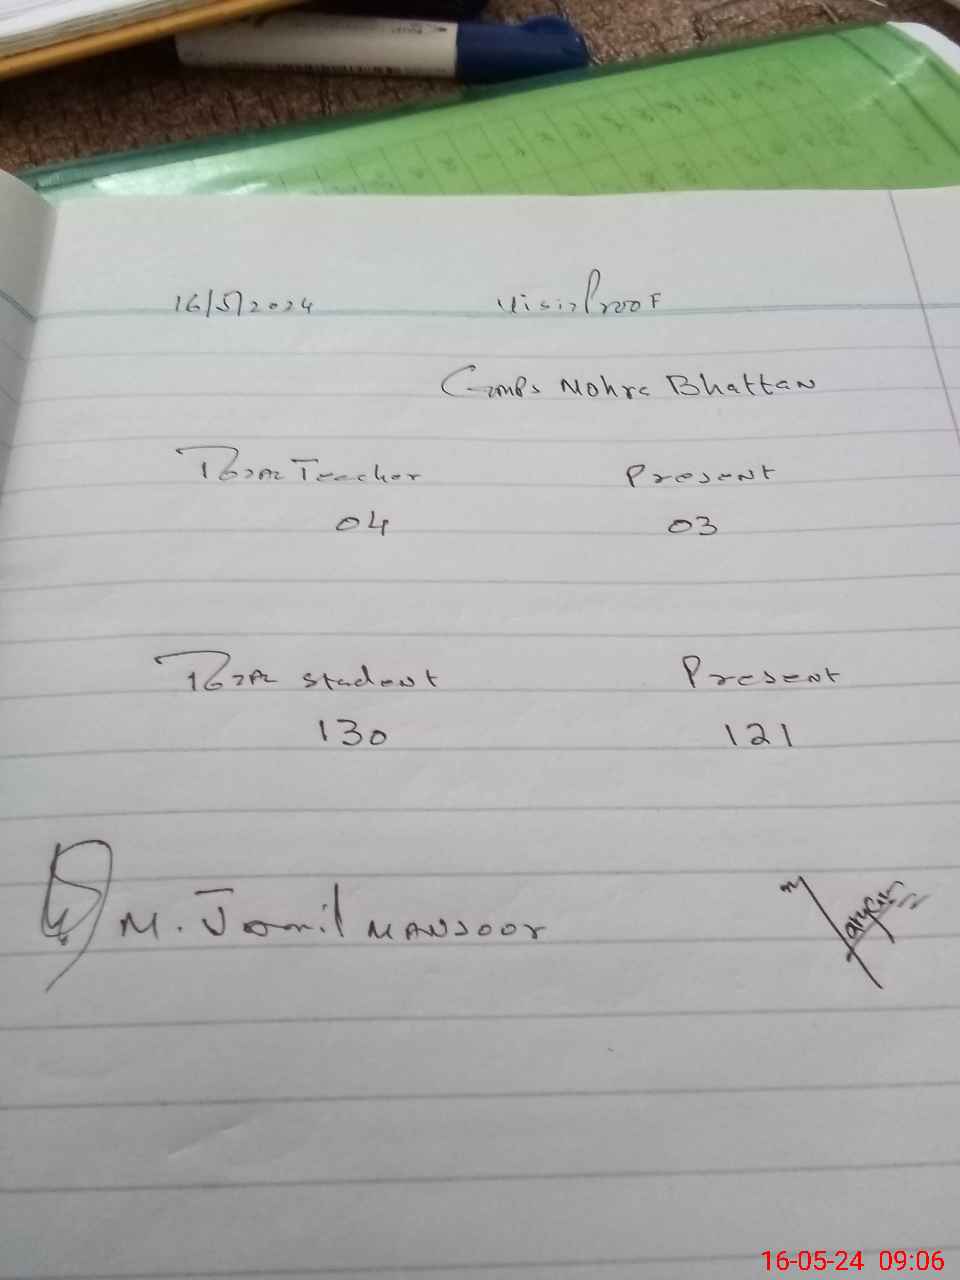 16/5/2024 Visit Proof
GMPS Mohra Bhattan
Total Teacher Present
04 03
Total student Present
130 121
M. Jamil MANSOOR
16-05-24 09:06